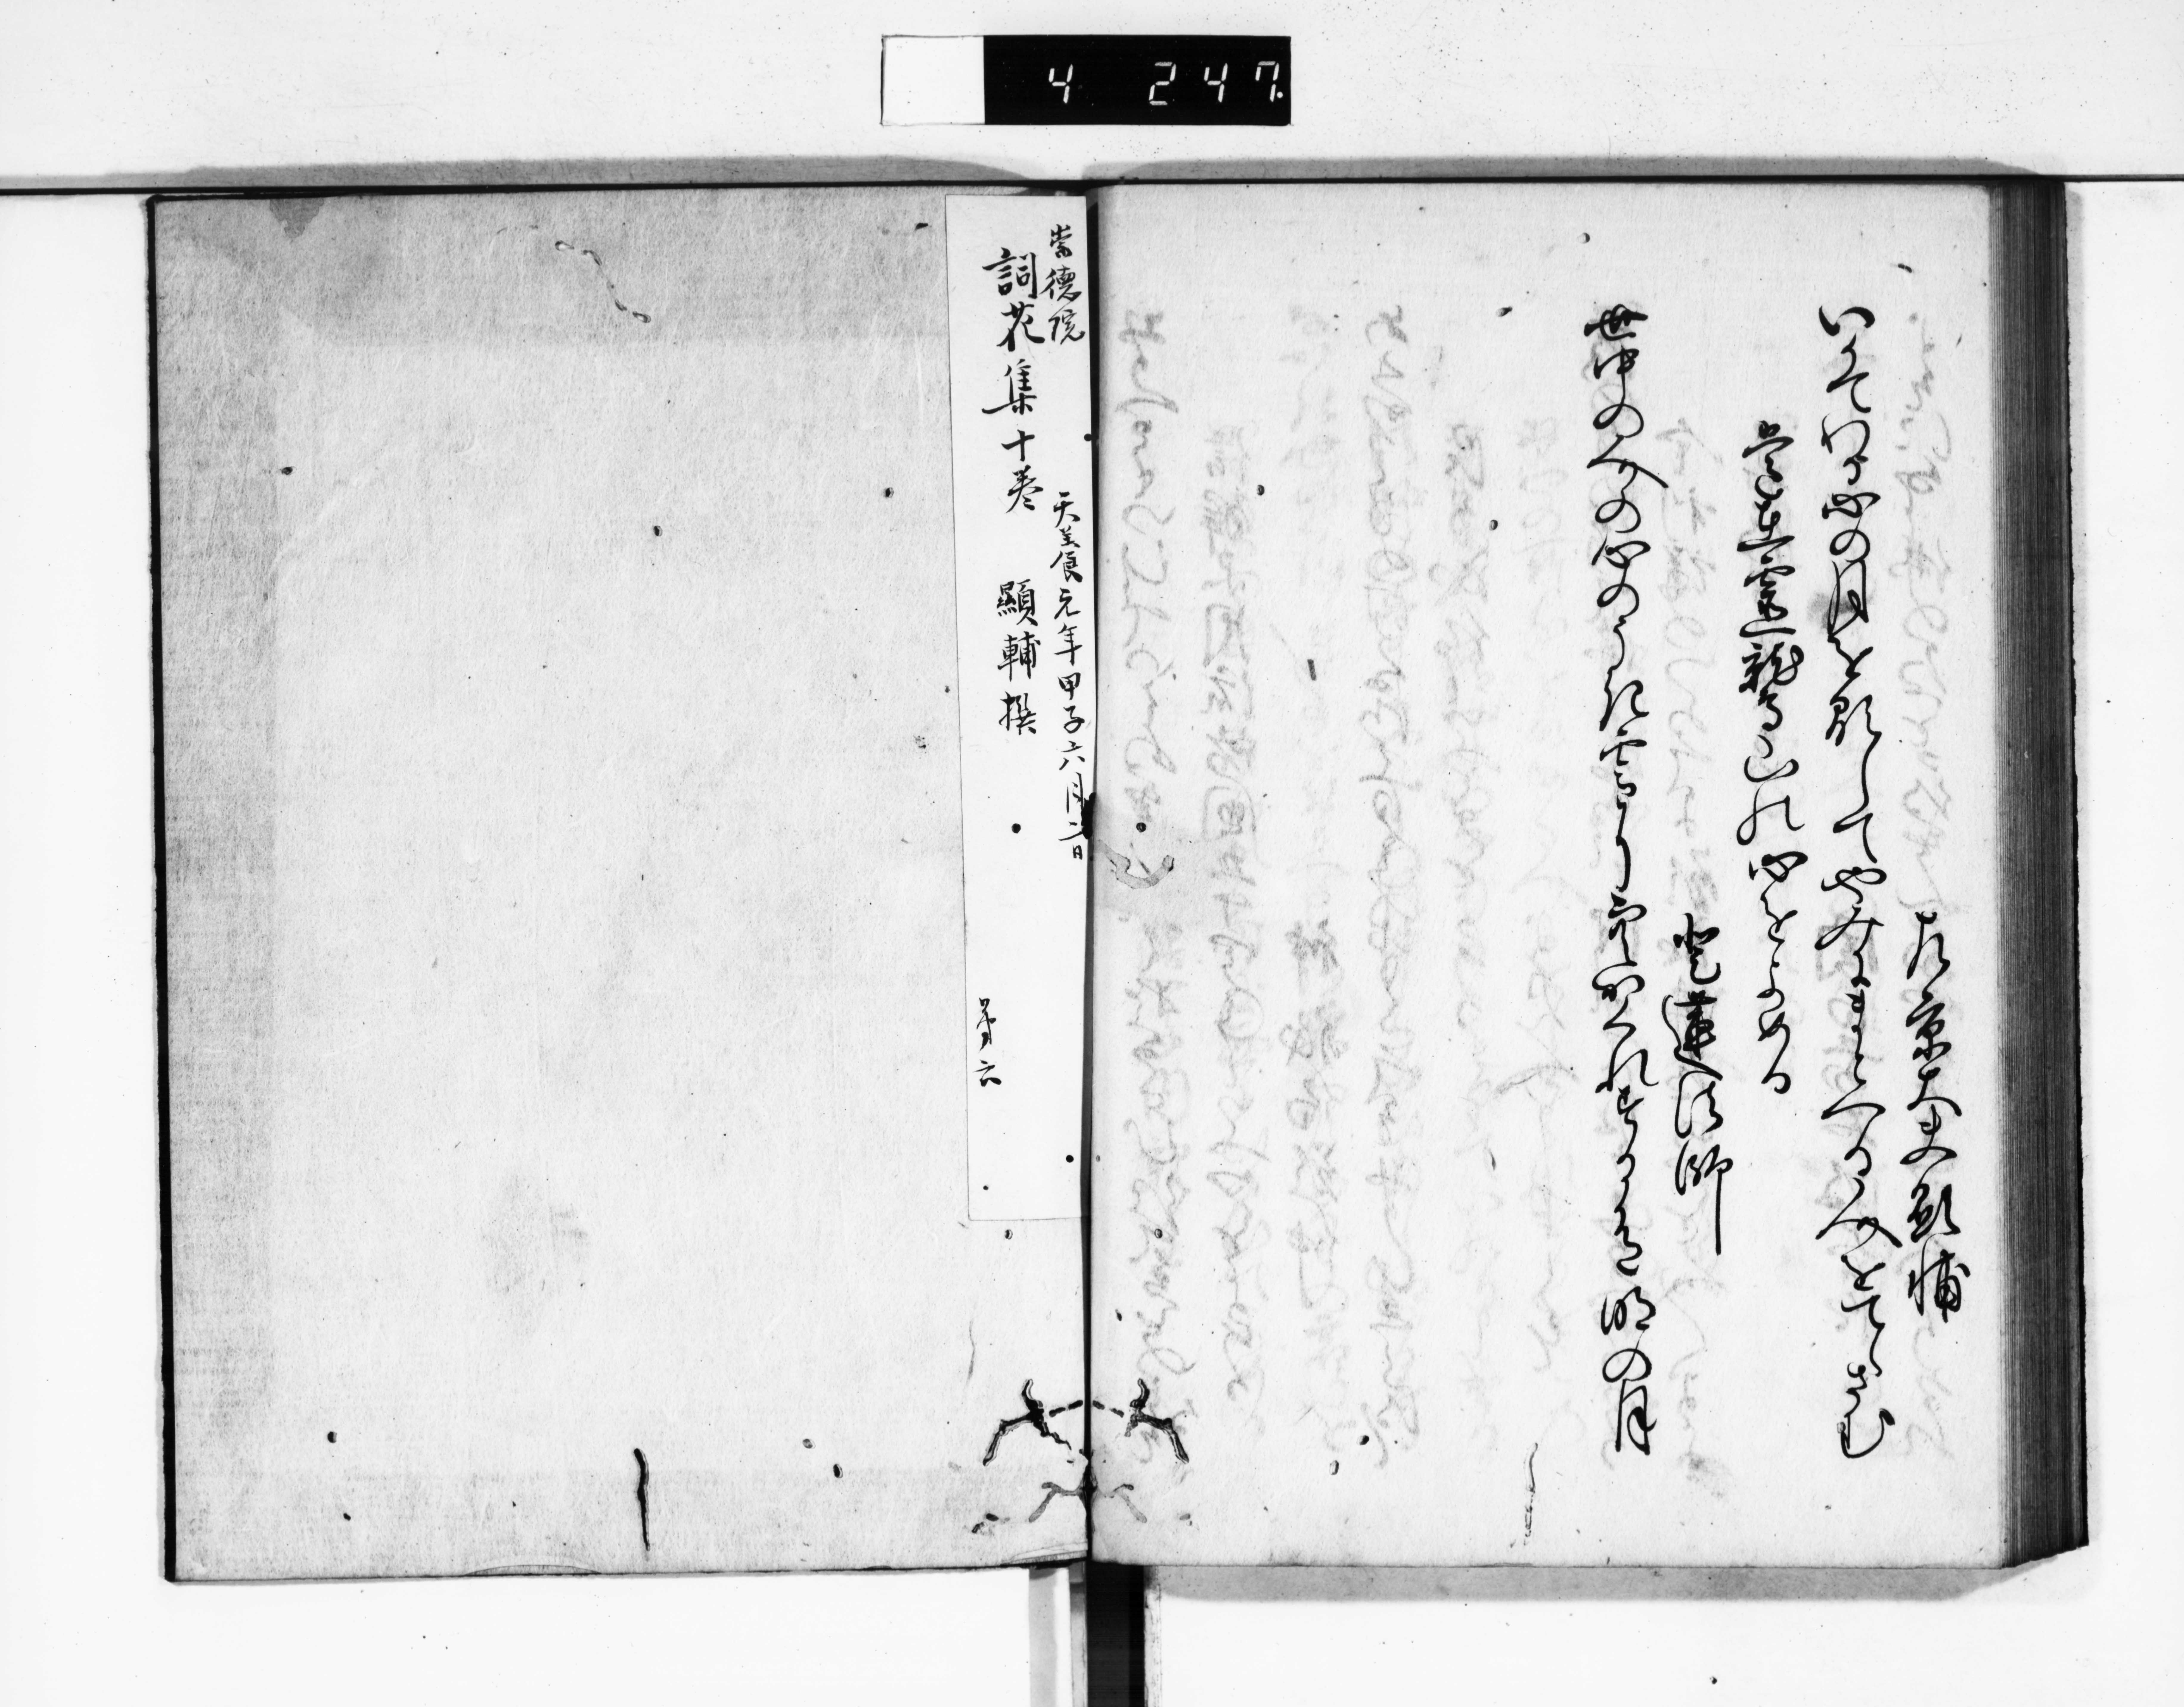 左京大夫顕輔
いかてわか心の月を顕してやみにまとへる人をてらさむ
常在霊鷲山の心をよめる
登蓮法師
世中の人の心のうき雲に空かくれする有明の月
崇徳院 天養元年甲子六月二日
詞花集十巻 顯輔撰
4 247.